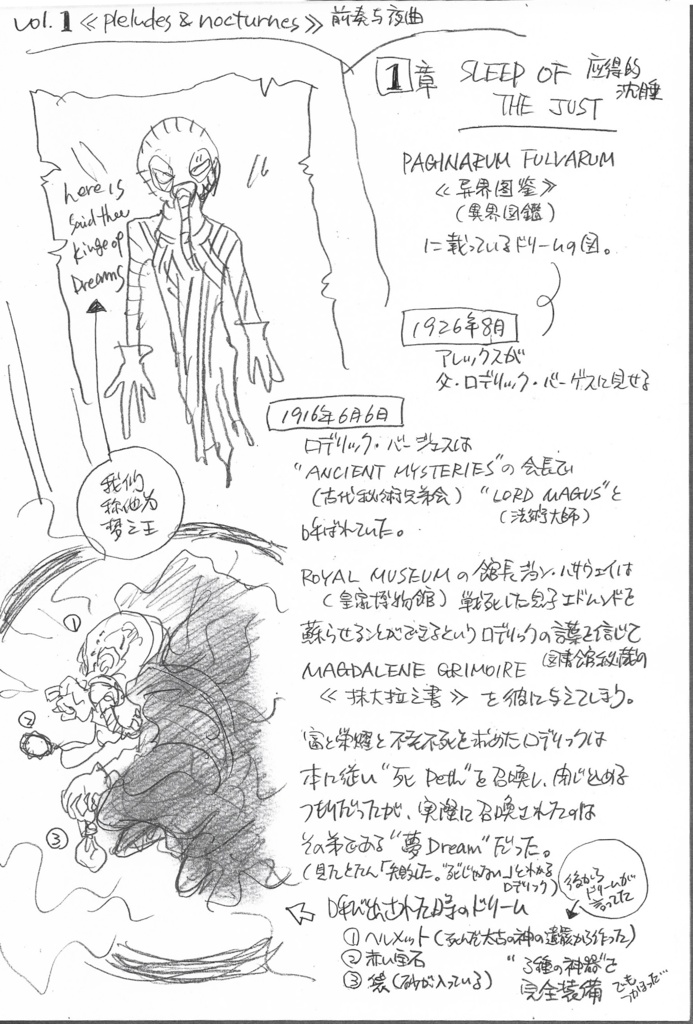 vol.1 ≪pleludes & nocturnes≫ 前奏与夜曲
1章 SLEEP OF THE JUST
应得的沈睡
PAGINARUM FULVARUM
≪异界图鉴≫
(異界図鑑)
に載っているドリームの図。
here is
said thee
kinge op
Dreams
1926年8月
アレックスが
父・ロデリック・バージェスに見せる
1916年6月6日
ロデリック・バージェスは
"ANCIENT MYSTERIES"の会長で
(古代秘術兄弟会) "LORD MAGUS"と
(法術大師)
呼ばれていた。
我们
称他为
梦之王
ROYAL MUSEUMの館長ジョン・ハサウェイは
(皇家博物館) 戦死した息子エドムンドを
蘇らせることができるというロデリックの言葉を信じて
図書館秘蔵の
MAGDALENE GRIMOIRE
≪抹大拉之書≫ を彼に与えてしまう。
富と栄耀と不老不死を求めたロデリックは
本に従い"死 Deth"を召喚し、閉じ込める
つもりだったが、実際に召喚されたのは
その弟である"夢Dream"だった。
(見たとたん「失敗した。"死"じゃない」とわかる
ロデリック)
呼び出された時のドリーム
後から
ドリームが
言ってた
① ヘルメット(死んだ太古の神の遺骸から作った)
② 赤い宝石
③ 袋(砂が入っている)
"3種の神器"を
完全装備
でも
つかまった…
①
②
③